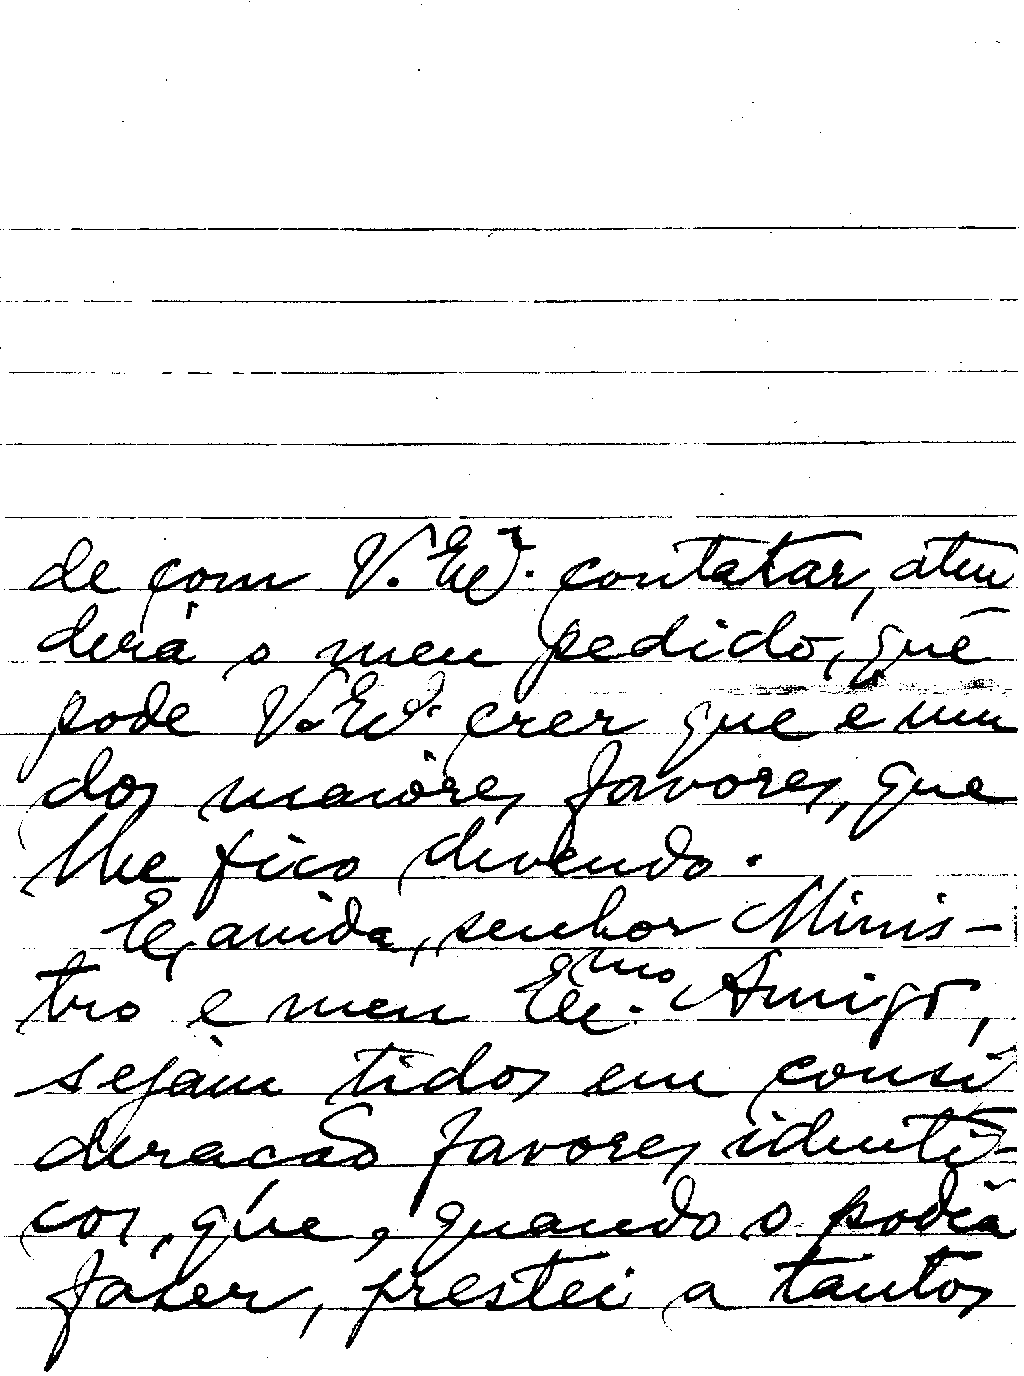 de com V. Ex.ª contatar, aten
derá o meu pedido, que
pode V. Ex.ª crer que é um
dos maiores favores, que
lhe fico devendo.
E, ainda, senhor Minis-
tro e meu Exc.mo Amigo,
sejam tidos em consi
deracão favores identi-
cos, que, quando o podia
fazer, prestei a tantos